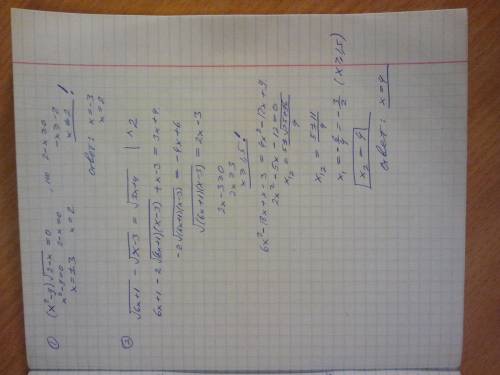 ① (x²-9)√2-x = 0, но 2-x ≥ 0
x²-9=0 2-x=0 -x ≥ -2
x=±3 x=2 x ≤ 2 !
ответ: x=-3
x=2
② √6x+1 - √x-3 = √3x+4 | ^2
6x+1 - 2√(6x+1)(x-3) + x-3 = 3x+4
-2√(6x+1)(x-3) = -4x+6
√(6x+1)(x-3) = 2x-3
2x-3 ≥ 0
2x ≥ 3
x ≥ 1,5 !
6x²-17x-3 = 4x²-12x+9
2x²-5x-12=0
x₁₂ = 5±√25+96 / 4
x₁₂ = 5±11 / 4
x₁ = -6/4 = -3/2 (x ≥ 1,5)
x₂ = 4
ответ: x=4